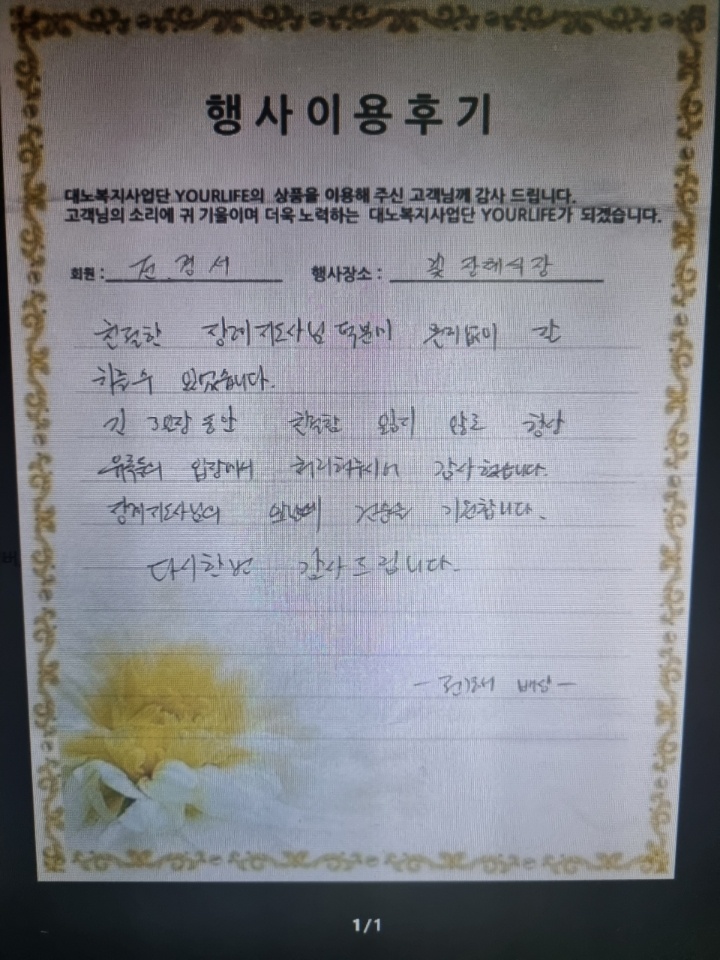 행사이용후기
대노복지사업단 YOURLIFE의 상품을 이용해 주신 고객님께 감사 드립니다.
고객님의 소리에 귀 기울이며 더욱 노력하는 대노복지사업단 YOURLIFE가 되겠습니다.
회원 : 전경서 행사장소 : 꽃 장례식장
친절한 장례지도사님 덕분에 문제없이 잘
치를수 있었습니다.
긴 3일장 동안 친절함 잃지 않고 항상
유족들의 입장에서 처리해주시어 감사했습니다.
장례지도사님의 앞날에 건승을 기원합니다.
다시한번 감사드립니다.
- 전경서 배상 -
1/1